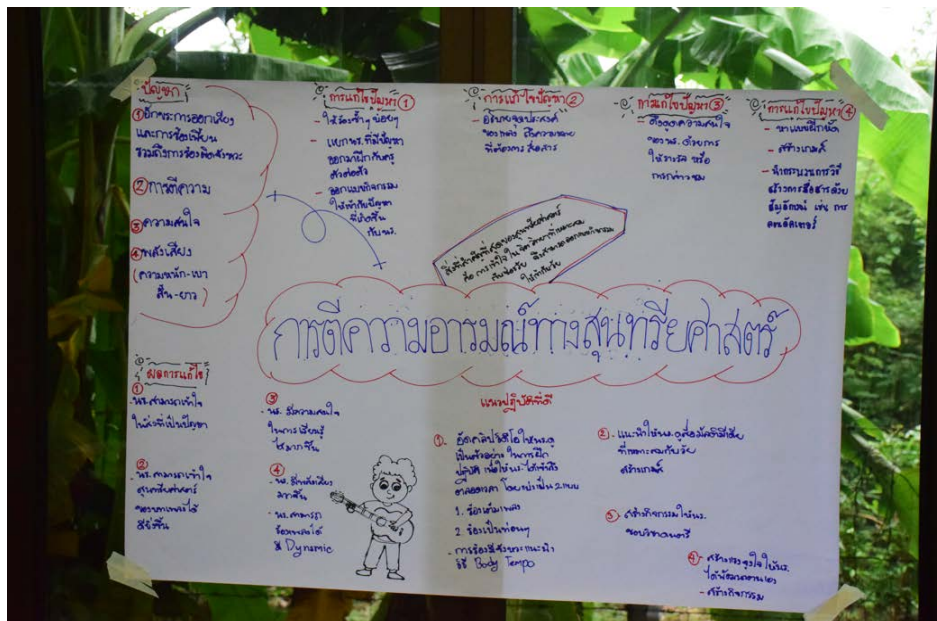 ปัญหา
① อักขระการออกเสียง
และการร้องเพี้ยน
รวมถึงการร้องผิดจังหวะ
② การตีความ
③ ความสนใจ
④ พลังเสียง
(ความหนัก-เบา
สั้น-ยาว)
การแก้ไขปัญหา ①
- ให้ร้องซ้ำๆ บ่อยๆ
- แยกนร. ที่มีปัญหา
ออกมาฝึกกับครู
ตัวต่อตัว
- ออกแบบกิจกรรม
ให้เข้ากับปัญหา
ที่เกิดขึ้น
กับนร.
การแก้ไขปัญหา ②
- อธิบายจุดประสงค์
ของเพลง ถึงความหมาย
ที่ต้องการสื่อสาร
การแก้ไขปัญหา ③
- ดึงดูดความสนใจ
ของนร. ด้วยการ
ให้รางวัล หรือ
การกล่าวชม
การแก้ไขปัญหา ④
- หาแบบฝึกหัด
- สร้างเกมส์
- นำกระบวนการวิธี
สร้างการสื่อสารด้วย
สัญลักษณ์ เช่น การ
คอนดักเตอร์
สิ่งที่สำคัญที่สุดของสุนทรียศาสตร์
คือ การเข้าใจในจิตวิทยาที่เหมาะสม
กับช่วงวัย จึงสามารถออกแบบกิจกรรม
ให้เข้ากับวัย
การตีความอารมณ์ทางสุนทรียศาสตร์
ผลการแก้ไข
①
- นร. สามารถเข้าใจ
ในสิ่งที่เป็นปัญหา
②
- นร. สามารถเข้าใจ
สุนทรียศาสตร์
ของบทเพลงได้
ดียิ่งขึ้น
③
- นร. มีความสนใจ
ในการเรียนรู้
ได้มากขึ้น
④
- นร. มีพลังเสียง
มากขึ้น
- นร. สามารถ
ร้องเพลงได้
มี Dynamic
แนวปฏิบัติที่ดี
①. อัดคลิปวิดีโอให้นร. ดู
เป็นตัวอย่าง ในการฝึก
ปฏิบัติ เพื่อให้นร. ได้
ตลอดเวลา โดยแบ่งเป็น 2 แบบ
1. ร้องเต็มเพลง
2. ร้องเป็นท่อนๆ
- การร้อง แนะนำ
วิธี Body Tempo
②. แนะนำให้นร. ดูสื่อมัลติมีเดีย
ที่เหมาะสมกับวัย
สร้างเกมส์
③. สร้างกิจกรรมให้นร.
ชอบวิชาดนตรี
④ - สร้างแรงจูงใจให้นร.
ได้พัฒนาตนเอง
- สร้างกิจกรรม